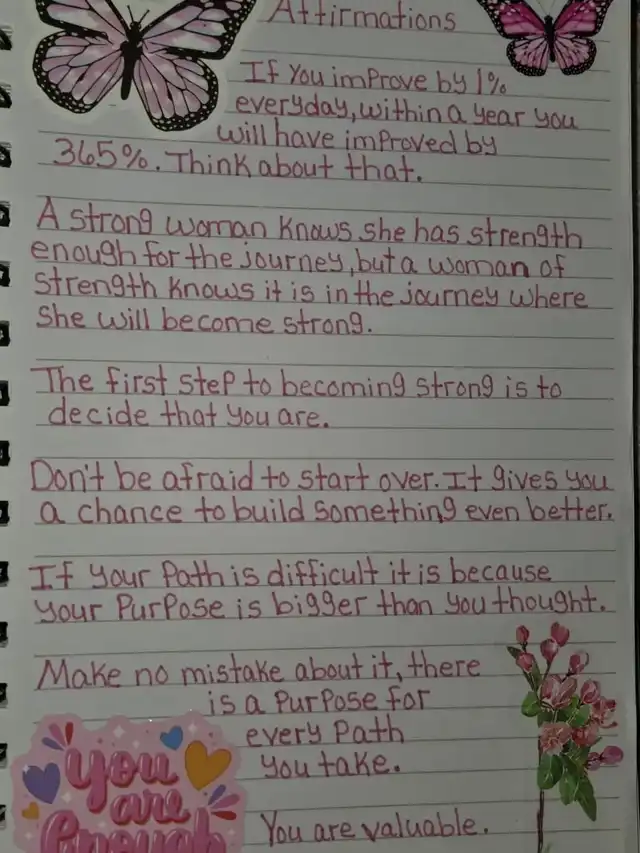 Affirmations
If you improve by 1%
everyday, within a year you
will have improved by
365%. Think about that.
A strong woman knows she has strength
enough for the journey, but a woman of
strength knows it is in the journey where
she will become strong.
The first step to becoming strong is to
decide that you are.
Don't be afraid to start over. It gives you
a chance to build something even better.
If your path is difficult it is because
your purpose is bigger than you thought.
Make no mistake about it, there
is a purpose for
every path
you take.
You are valuable.
you
are
Enough